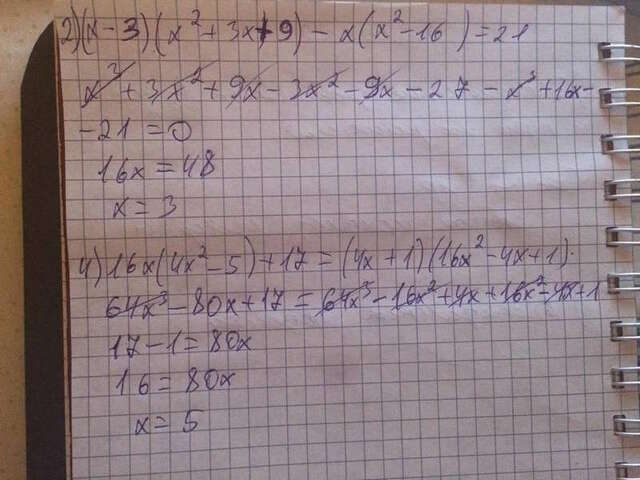 2) (x-3)(x²+3x+9) - x(x²-16) = 21
x³ + 3x² + 9x - 3x² - 9x - 27 - x³ + 16x -
-21 = 0
16x = 48
x = 3
4) 16x(4x²-5)+17 = (4x+1)(16x²-4x+1).
64x³ - 80x + 17 = 64x³ - 16x² + 4x + 16x² - 4x + 1
17-1 = 80x
16 = 80x
x = 5